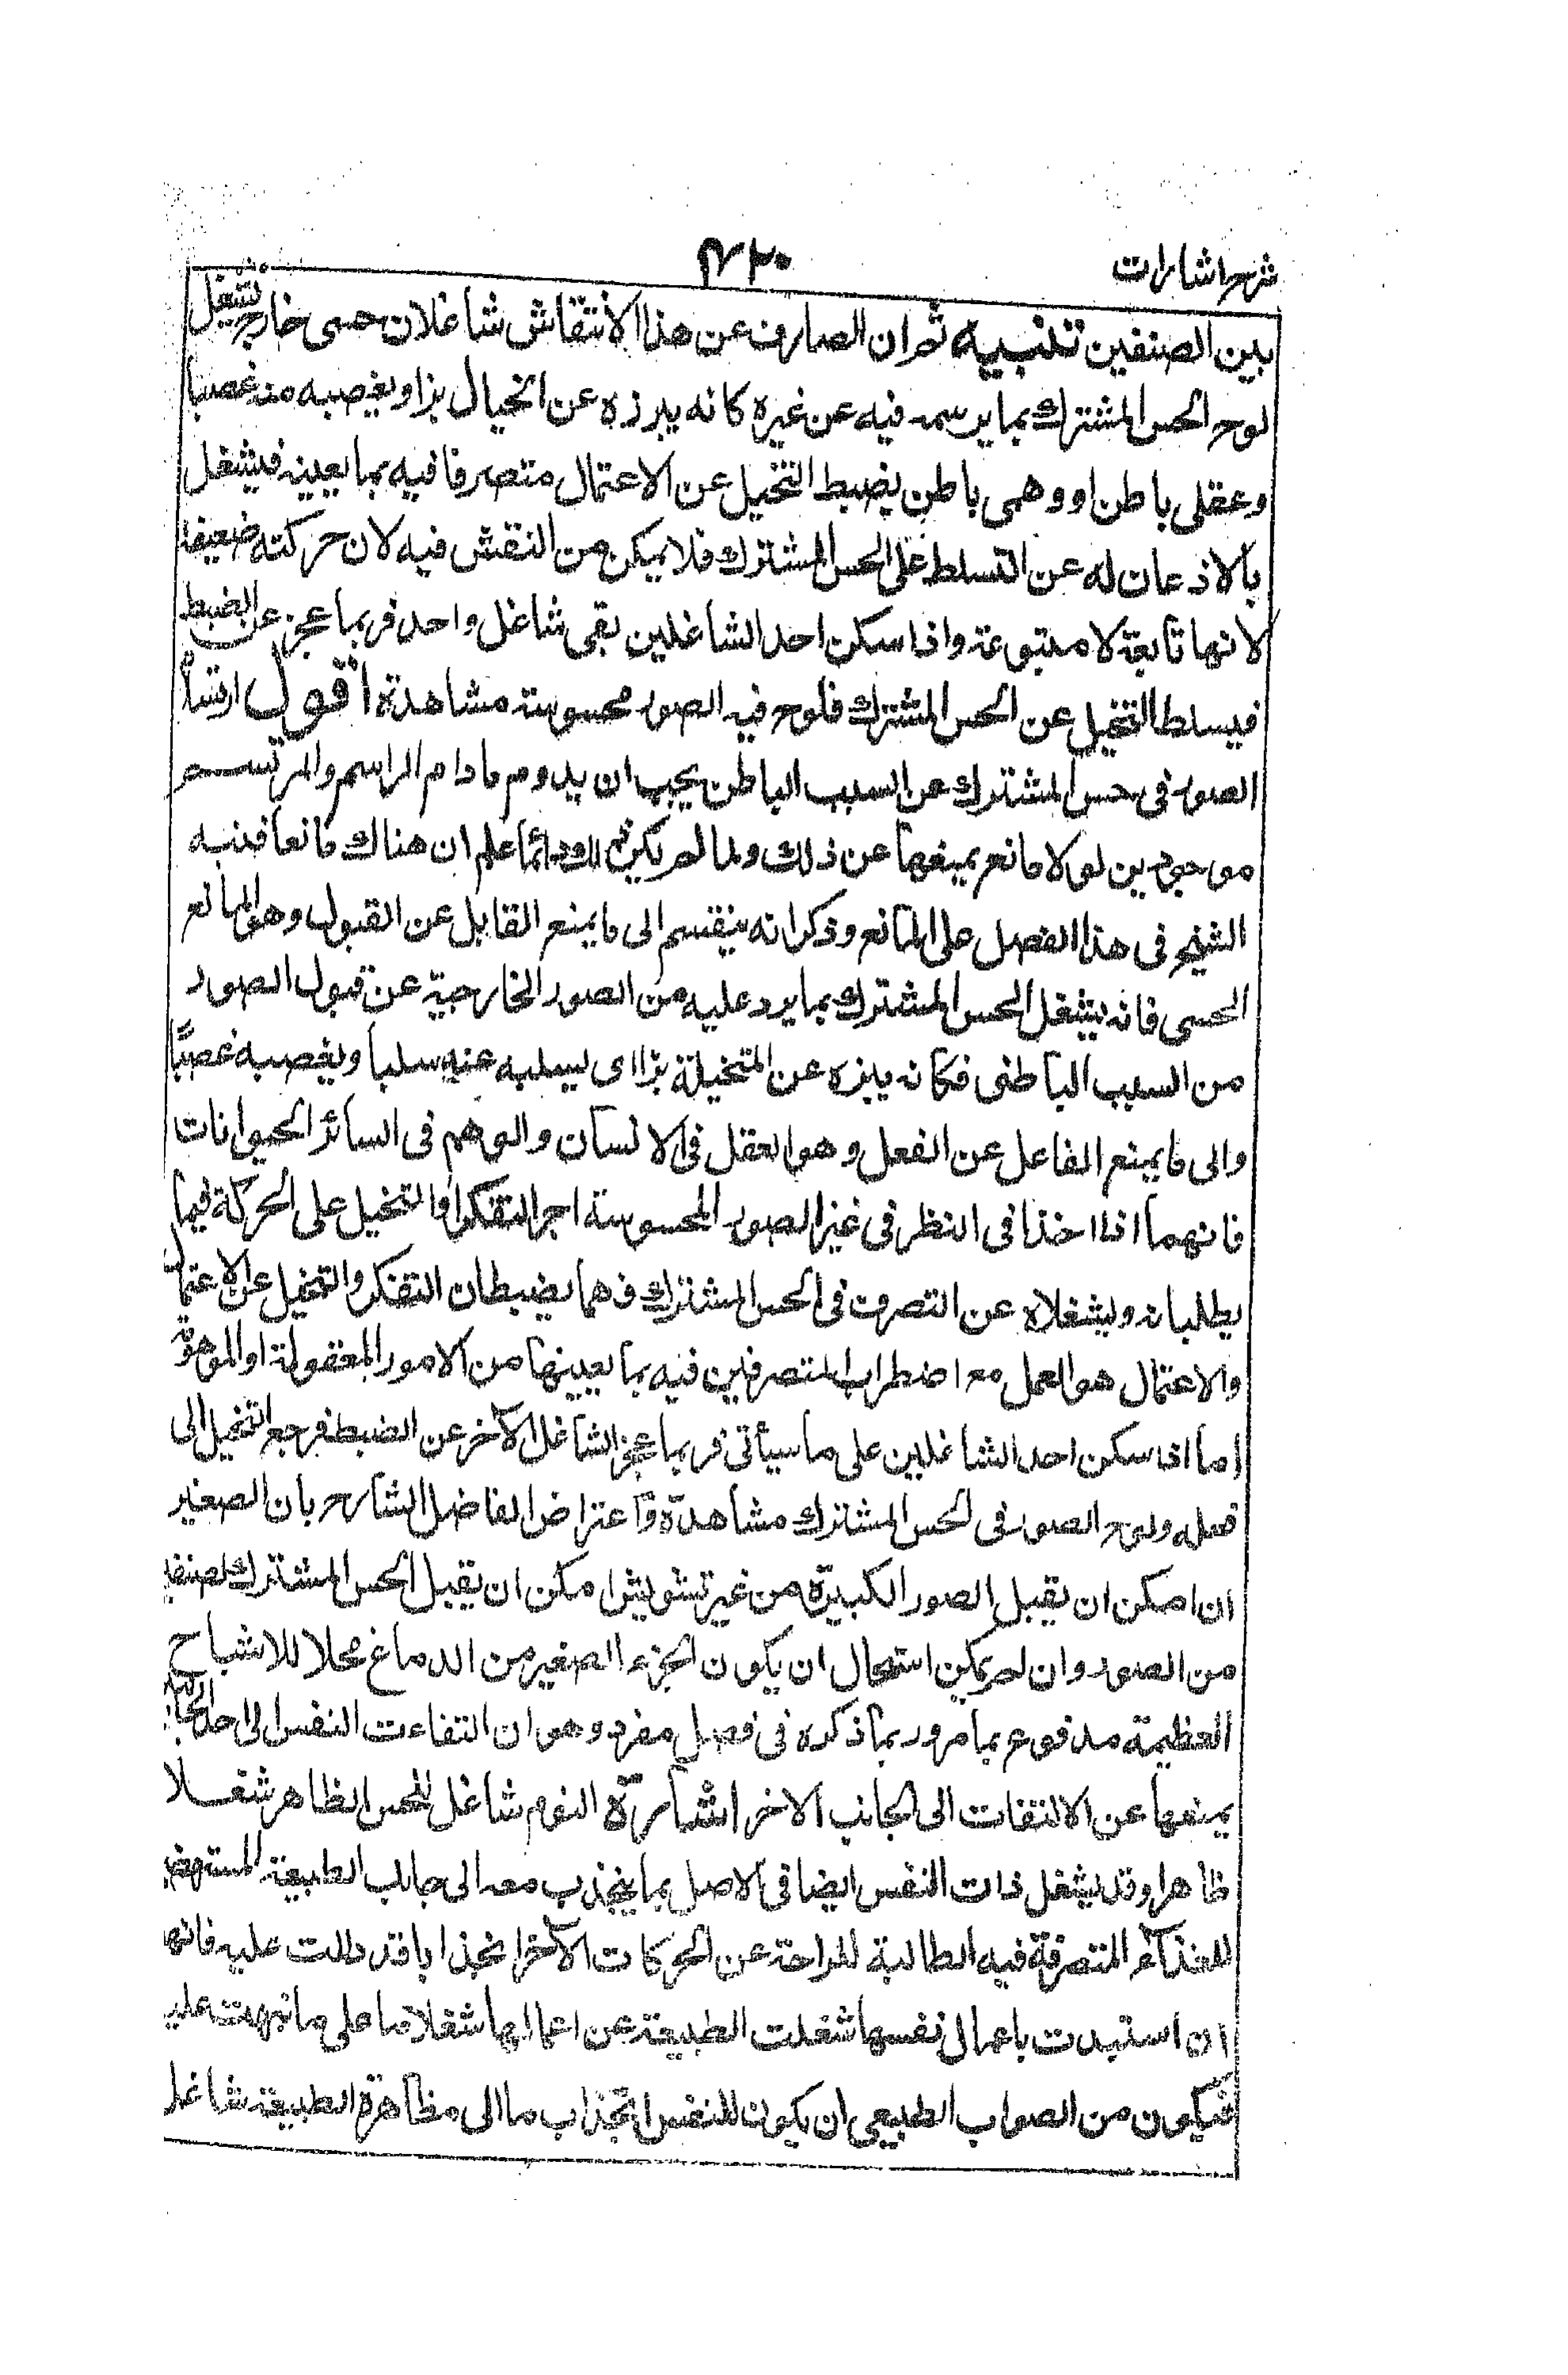 شرح اشارات
بين الصنفين تنبيه ثم ان الصارف عن هذا الانتقاش شاغلان حسى خارج يشغل
لوح الحس المشترك بما يرسمه فيه عن غيره كانه يبزه عن الخيال بزا ويغصبه منه غصبا
وعقلى باطن او وهمى باطن يضبط التخيل عن الاعتمال متصرفا فيه بما يعينه فيشغل
بالاذعان له عن التسلط على الحس المشترك فلا يمكن من النقش فيه لان حركته ضعيفة
لانها تابعة لا متبوعة واذا سكن احد الشاغلين بقى شاغل واحد فربما عجز عن الضبط
فيسلط التخيل عن الحس المشترك فلوح فيه الصور محسوسة مشاهدة اقول ارتسام
الصور فى حس المشترك عن السبب الباطن يجب ان يدوم ما دام الراسم والمرتسم
موجودين لولا مانع يمنعها عن ذلك ولما لم يكن ذلك دائما علم ان هناك مانعا فنبه
الشيخ فى هذا الفصل على المانع وذكر انه ينقسم الى ما يمنع القابل عن القبول وهو المانع
الحسى فانه يشغل الحس المشترك بما يرد عليه من الصور الخارجية عن قبول الصور
من السبب الباطنى فكانه يبزه عن المتخيلة بزا اى يسلبه عنه سلبا ويغصبه غصبًا
والى ما يمنع الفاعل عن الفعل وهو العقل فى الانسان والوهم فى السائر الحيوانات
فانهما اذا اخذا فى النظر فى غير الصور المحسوسة اجبرا التفكر او التخيل على الحركة فيما
يطلبانه ويشغلاه عن التصرف فى الحس المشترك فهما يضبطان التفكر والتخيل عن الاعتمال
والاعتمال هو العمل مع اضطراب المتصرفين فيه بما يعينها من الامور المعقولة او الموهومة
اما اذا سكن احد الشاغلين على ما سيأتى فربما عجز الشاغل الآخر عن الضبط فرجع التخيل الى
فعله ولوح الصور فى الحس المشترك مشاهدة واعتراض الفاضل الشارح بان الصغير
ان امكن ان يقبل الصور الكبيرة من غير تشويش امكن ان يقبل الحس المشترك لصنفى
من الصور وان لم يمكن استحال ان يكون الجزء الصغير من الدماغ محلا للاشباح
العظيمة مدفوع بما مر وربما ذكره فى فصل مفرد وهو ان التفات النفس الى احد الجانبين
يمنعها عن الالتفات الى الجانب الاخر اشارة النوم شاغل للحس الظاهر شغلا
ظاهرا وقد يشغل ذات النفس ايضا فى الاصل بما ينجذب معه الى جانب الطبيعة المستهضمة
للغذاء المتصرفة فيه الطالبة للراحة عن الحركات الآخر انجذابا قد دللت عليه فانها
ان استبدت باعمال نفسها شغلت الطبيعة عن اعمالها شغلا ما على ما نبهت عليه
فيكون من الصواب الطبيعى ان يكون للنفس انجذاب ما الى مظاهرة الطبيعة شاغل